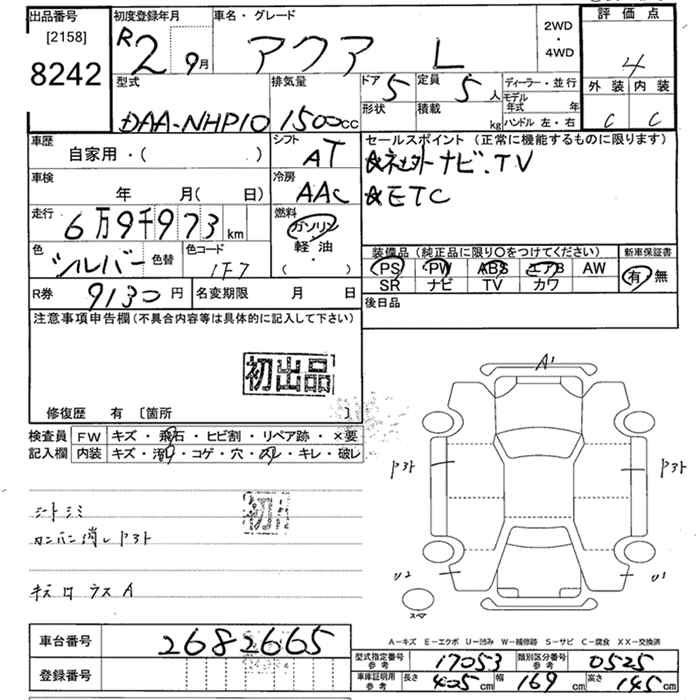 出品番号 初度登録年月 車名・グレード 2WD・4WD 評価点
[2158]
8242 R2 9月 アクア L 4
型式 排気量 ドア 5 定員 5人 ディーラー・並行 外装 内装
形状 積載 kg モデル年式 年
DAA-NHP10 1500cc ハンドル 左・右 C C
車歴 自家用・( ) シフト AT セールスポイント(正常に機能するものに限ります)
☆社外ナビ.TV
車検 年 月( 日) 冷房 AAC ☆ETC
走行 6万9千973km 燃料 ガソリン 軽油 ・( )
色 シルバー 色替 色コード 1F7 装備品(純正品に限り〇をつけてください) 新車保証書
PS PW ABS エアB AW 有・無
SR ナビ TV カワ
R券 9130円 名変期限 月 日 後日品
注意事項申告欄(不具合内容等は具体的に記入して下さい)
初出品
修復歴 有 〔箇所 〕
検査員 FW キズ・飛石・ヒビ割・リペア跡・×要
記入欄 内装 キズ・汚れ・コゲ・穴・スレ・キレ・破レ
A'
P3ト P3ト
シートシミ
カンバン消しP3ト
U2 U1
キズ ロ ラス A
スマ
A-キズ E-エクボ U-凹み W-補修跡 S-サビ C-腐食 XX-交換済
車台番号 2682665 型式指定番号 参考 17053 類別区分番号 参考 0525
登録番号 車庫証明用 参考 長さ 405cm 幅 169cm 高さ 145cm